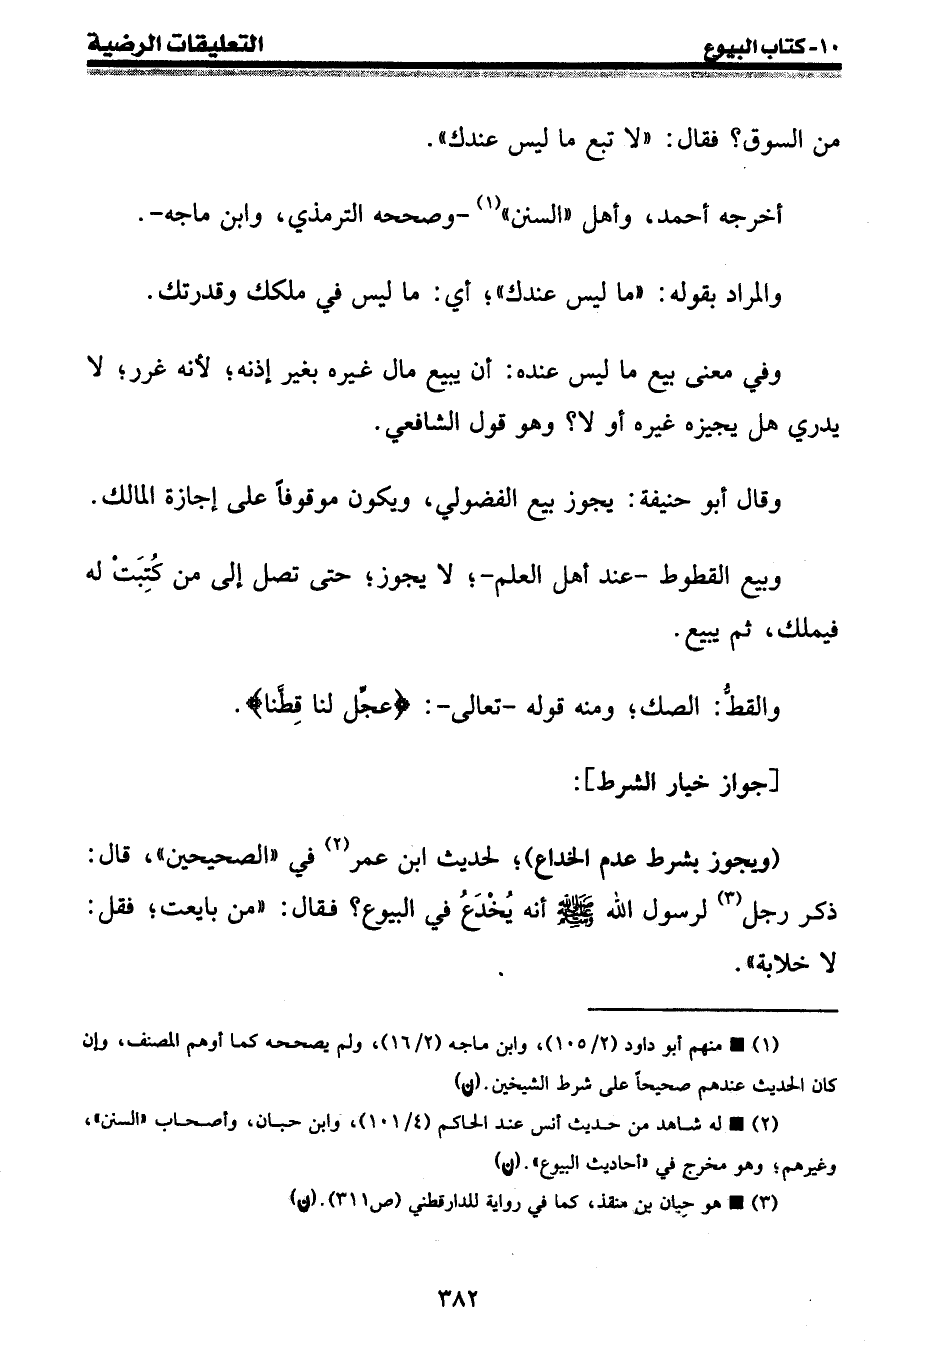 ١٠- كتاب البيوع
التعليقات الرضية
من السوق؟ فقال: «لا تبع ما ليس عندك».
أخرجه أحمد، وأهل «السنن»(١) -وصححه الترمذي، وابن ماجه-.
والمراد بقوله: «ما ليس عندك»؛ أي: ما ليس في ملكك وقدرتك.
وفي معنى بيع ما ليس عنده: أن يبيع مال غيره بغير إذنه؛ لأنه غرر؛ لا
يدري هل يجيزه غيره أو لا؟ وهو قول الشافعي.
وقال أبو حنيفة: يجوز بيع الفضولي، ويكون موقوفاً على إجازة المالك.
وبيع القطوط -عند أهل العلم-؛ لا يجوز؛ حتى تصل إلى من كُتِبَتْ له
فيملك، ثم يبيع.
والقطُّ: الصك؛ ومنه قوله -تعالى-: ﴿عجِّل لنا قِطَّنا﴾.
[جواز خيار الشرط]:
(ويجوز بشرط عدم الخداع)؛ لحديث ابن عمر(٢) في «الصحيحين»، قال:
ذكر رجل(٣) لرسول الله ﷺ أنه يُخْدَعُ في البيوع؟ فقال: «من بايعت؛ فقل:
لا خلابة».
(١) ■ منهم أبو داود (٢/ ١٠٥)، وابن ماجه (٢/ ١٦)، ولم يصححه كما أوهم المصنف، وإن
كان الحديث عندهم صحيحاً على شرط الشيخين. (ن)
(٢) ■ له شاهد من حديث أنس عند الحاكم (٤/ ١٠١)، وابن حبان، وأصحاب «السنن»،
وغيرهم؛ وهو مخرج في «أحاديث البيوع». (ن)
(٣) ■ هو حِبان بن منقذ، كما في رواية للدارقطني (ص٣١١). (ن)
٣٨٢